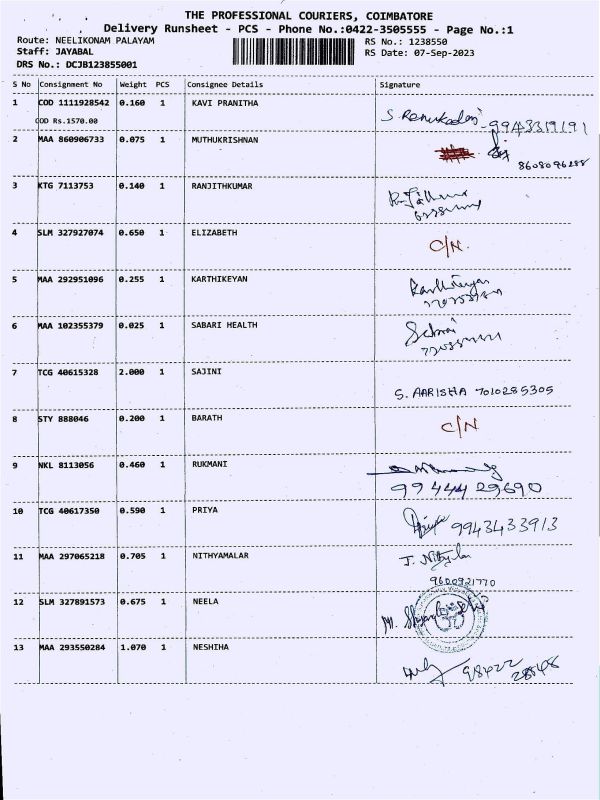 THE PROFESSIONAL COURIERS, COIMBATORE
Delivery Runsheet - PCS - Phone No.:0422-3505555 - Page No.:1
Route: NEELIKONAM PALAYAM RS No.: 1238550
Staff: JAYABAL RS Date: 07-Sep-2023
DRS No.: DCJB123855001
S No Consignment No Weight PCS Consignee Details Signature
1 COD 1111928542 0.160 1 KAVI PRANITHA
COD Rs.1570.00 S. Renukadevi - 9943319191
2 MAA 860906733 0.075 1 MUTHUKRISHNAN
8608096288
3 KTG 7113753 0.140 1 RANJITHKUMAR
4 SLM 327927074 0.650 1 ELIZABETH
C/N.
5 MAA 292951096 0.255 1 KARTHIKEYAN
Karthikeyan
6 MAA 102355379 0.025 1 SABARI HEALTH
7 TCG 40615328 2.000 1 SAJINI
S. AARISHA 7010285305
8 STY 888046 0.200 1 BARATH
C/N
9 NKL 8113056 0.460 1 RUKMANI
99444 29690
10 TCG 40617350 0.590 1 PRIYA
Priya 9943433913
11 MAA 297065218 0.705 1 NITHYAMALAR
J. Nithya
9600921770
12 SLM 327891573 0.675 1 NEELA
M.
13 MAA 293550284 1.070 1 NESHIHA
98422
28548